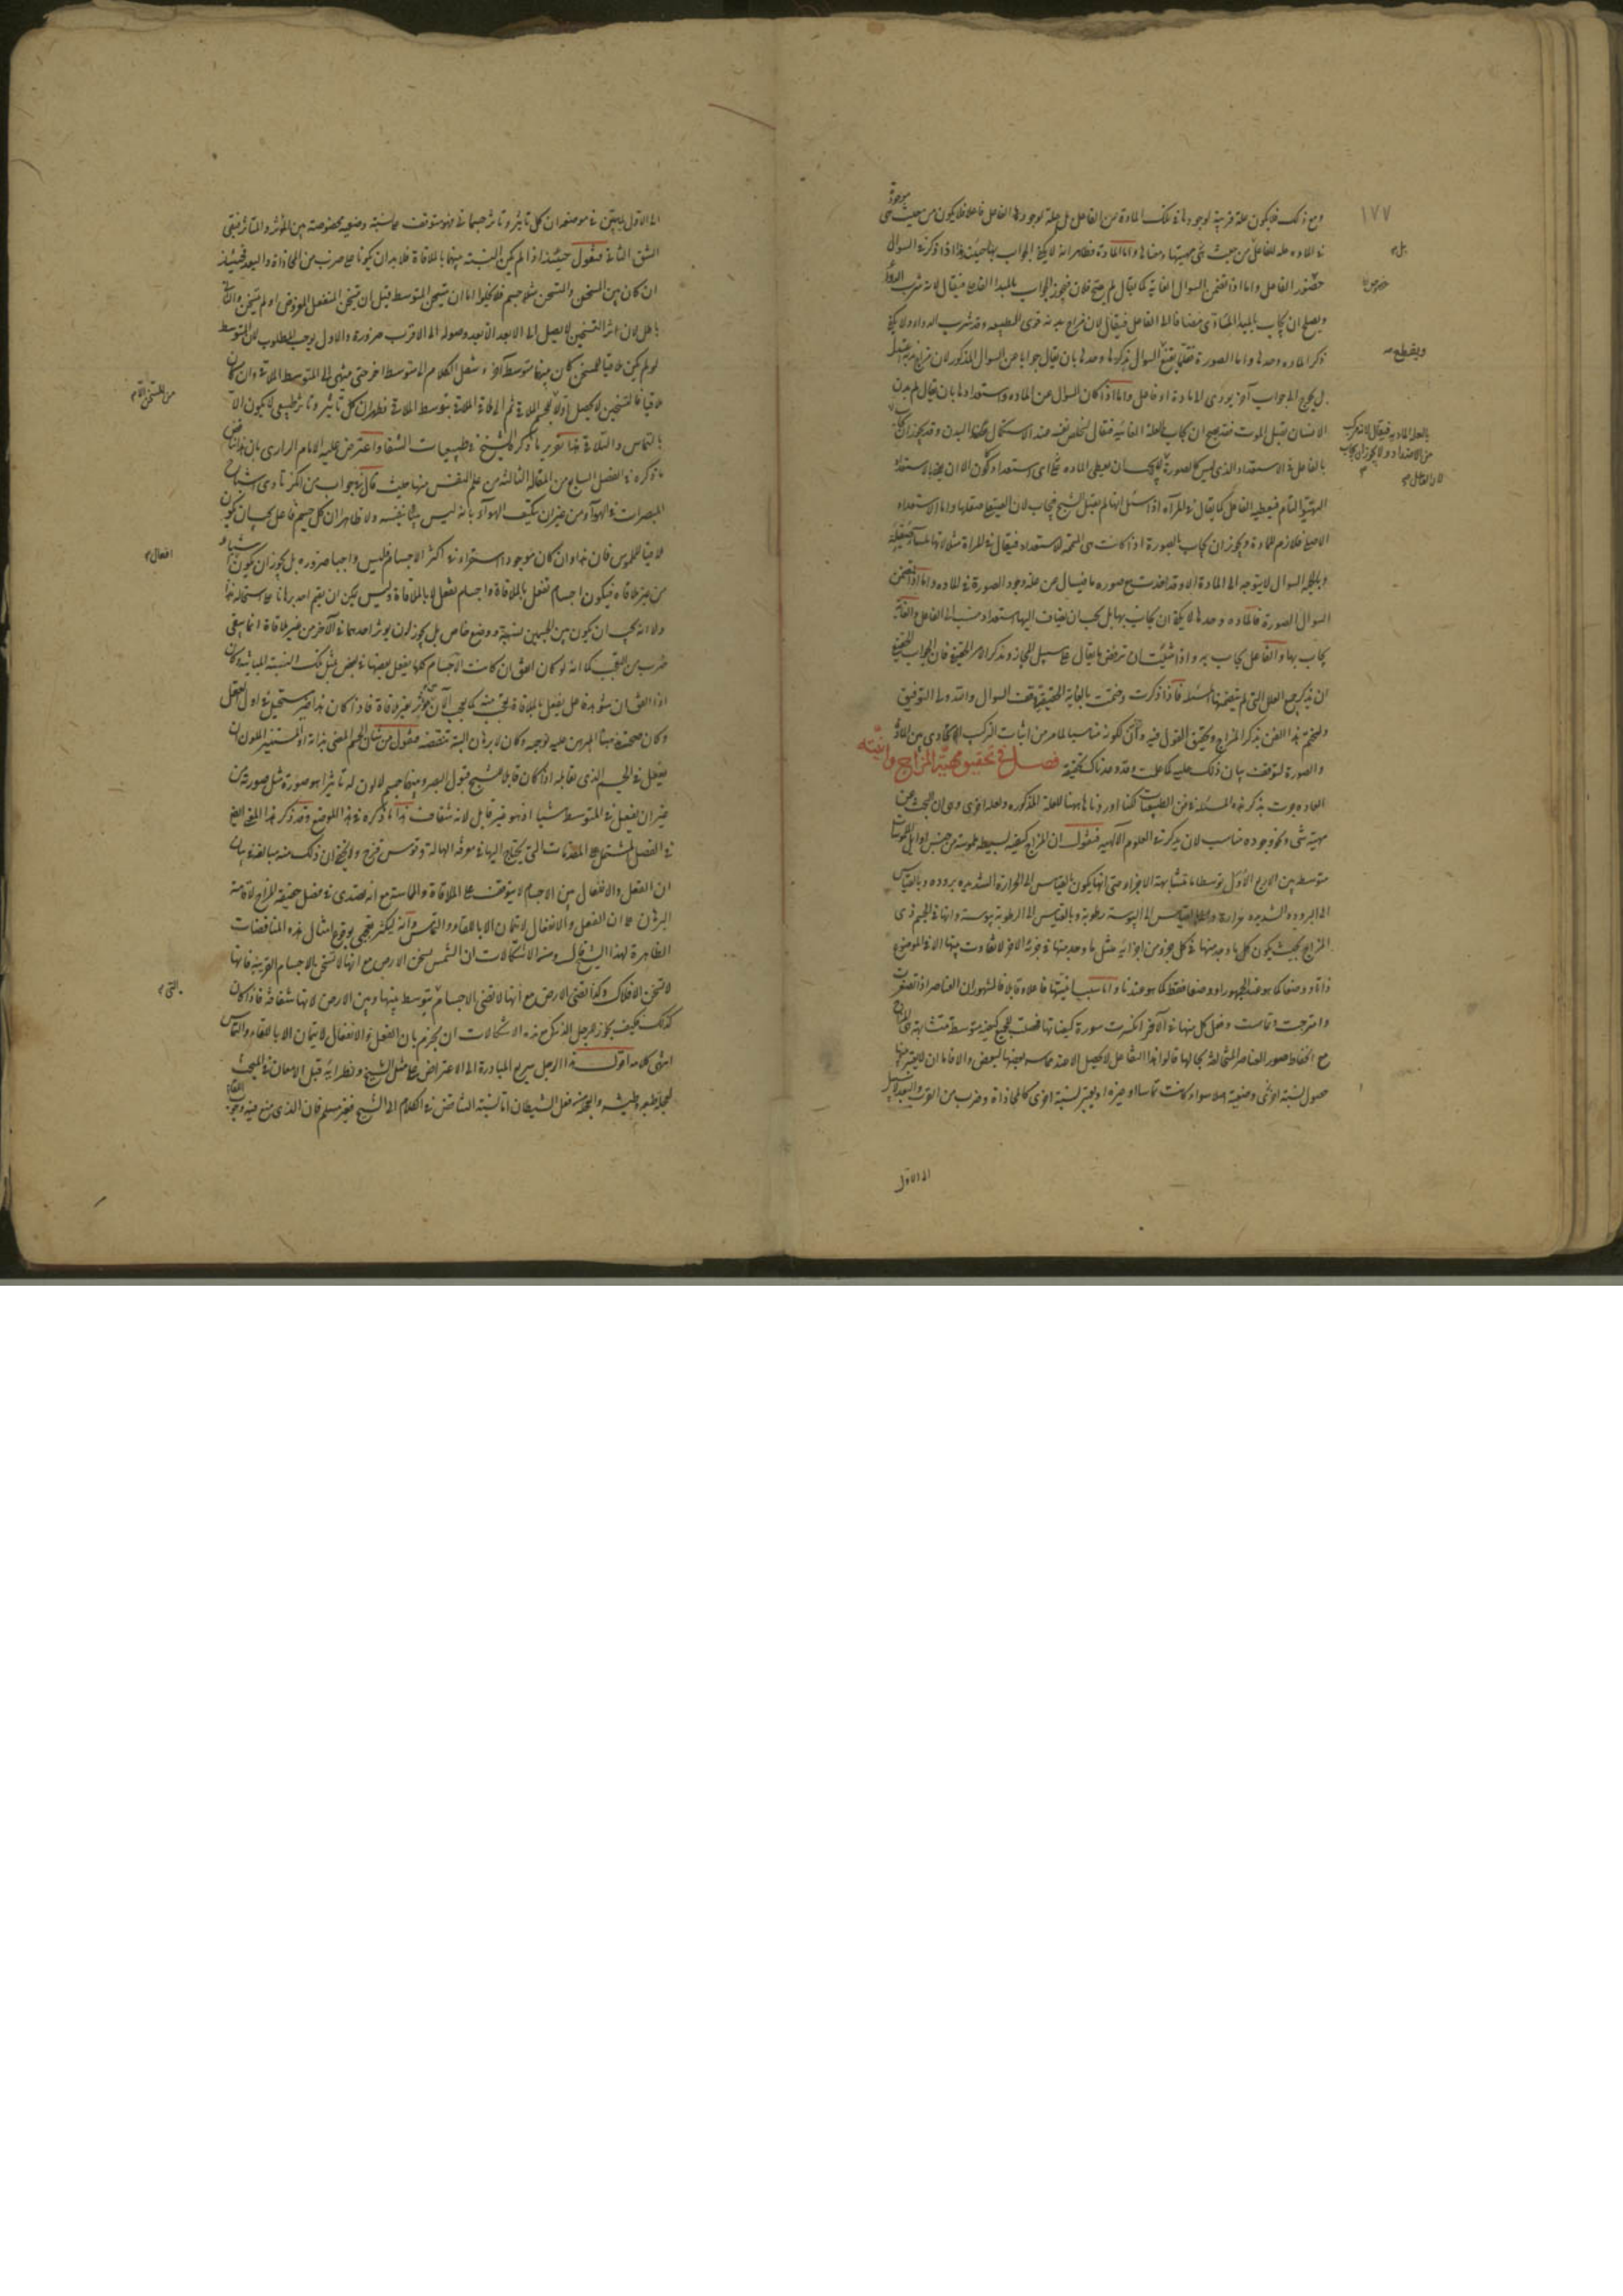 ١٧٧
ومع ذلك فلا يكون علة قريبة لوجودها في تلك المادة من الفاعل بل علة لوجود هذا الفاعل فاعلا فلا يكون من حيث هي موجودة
في المادة علة للفاعل من حيث هي مهيتها ومعناها واما المادة فظاهر انه لا يكفي الجواب بها حينئذ واذا ذكر في السؤال
حضور الفاعل واما اذا تضمن السؤال الغاية كما يقال لم صح فلان فيجوز الجواب بالمبدأ الفاعل فيقال لانه شرب الدواء
ويصلح ان يجاب بالمبدأ المادي مضافا الى الفاعل فيقال لان مزاج بدنه قوي الطبيعة وقد شرب الدواء ولا يكفي
ذكر المادة وحدها واما الصورة فقلما يقنع السؤال بذكرها وحدها بان يقال جوابا عن السؤال المذكور لان مزاجه اعتدل
بل يحوج الى جواب آخر يؤدي الى مادة او فاعل واما اذا كان السؤال عن المادة واستعدادها بان يقال لم بدن
الانسان يقبل الموت فقد يصح ان يجاب بالعلة الغائية فيقال لتخلص نفسه عند الاستكمال عن البدن وقد يجوز ان يجاب
بالعلة المادية فيقال لانه مركب
من الاضداد ولا يجوز ان يجاب
بالفاعل في الاستعداد الذي ليس كالصورة لان الفاعل لا يجب ان يعطي المادة اي استعداد يكون الا ان يعني بالاستعداد
التهيؤ التام فيعطيه الفاعل كما يقال في المرآة اذا سئل انها لم تقبل الشبح فيجاب لان الصيقل صقلها واما الاستعداد
الاصلي فلازم للمادة ويجوز ان يجاب بالصورة اذا كانت هي المتممة للاستعداد فيقال في المرآة مثلا لانها ملساء صقيلة
وبالجملة السؤال لا يتوجه الى المادة الا وقد اخذت مع صورة ما فيسأل عن علة وجود الصورة في المادة واما اذا تضمن
السؤال الصورة فالمادة وحدها لا يكفي ان يجاب بها بل يجب ان يضاف اليها استعداد منسوب الى الفاعل والغاية
يجاب بها والفاعل يجاب به واذا شئت ان ترفض ما يقال على سبيل المجاز وتذكر الامر الحقيقي فان الجواب الحقيقي
ان يذكر جميع العلل التي لم يتضمنها المسئلة فاذا ذكرت وختمت بالغاية الحقيقية وقف السؤال والله ولي التوفيق
ولنختم هذا الفن بذكر المزاج وتحقيق القول فيه وانيته لكونه مناسبا لما مر من اثبات التركيب الاتحادي بين المادة
والصورة لتوقف بيان ذلك عليه كما علمت وقد وعدناك تحقيقه فصل في تحقيق مهية المزاج وانيته
العادة جرت بذكر هذه المسئلة في الطبيعيات لكنا اوردناها ههنا للعلة المذكورة ولعلة اخرى وهي ان البحث عن
مهية شيء ونحو وجوده مناسب لان يذكر في العلوم الالهية فنقول ان المزاج كيفية بسيطة ملموسة من جنس اوائل الملموسات
متوسطة بين الاربع الاول توسطا ما متشابهة الاجزاء حتى انها يكون بالقياس الى الحرارة الشديدة برودة وبالقياس
الى البرودة الشديدة حرارة وبالقياس الى اليبوسة رطوبة وبالقياس الى الرطوبة يبوسة وانها في الجسم ذي
المزاج بحيث يكون كل ما وجد منها في كل جزء من اجزائه مثل ما وجد منها في جزئه الآخر لا تفاوت بينها الا في الموضوع
ذاتا ووضعا كما هو عند الجمهور او وضعا فقط كما هو عندنا واما سبب انيتها فاعلا وقابلا فالمشهور ان العناصر اذا تصغرت
وامتزجت وتماست وفعل كل منها في الآخر انكسرت سورة كيفياتها فحصلت للجميع كيفية متوسطة متشابهة هي المزاج
مع انحفاظ صور العناصر المتخالفة بحالها قالوا هذا التفاعل لا يحصل الا عند مماسة بعضها لبعض والا فاما ان لا يعتبر منها
حصول نسبة اخرى وضعية اصلا سواء كانت تماسا او غيره او يعتبر نسبة اخرى كالمحاذاة وضرب من القرب والبعد لا سبيل
الى الاول
الى الاول لما تبين في موضعه ان كل تأثير وتأثر جسماني فهو متوقف على نسبة وضعية مخصوصة بين المؤثر والمتأثر فبقي
الشق الثاني فنقول حينئذ اذا لم يكن النسبة بينهما بالملاقاة فلا بد ان يكونا على ضرب من المحاذاة والبعد فحينئذ
ان كان بين المسخن والمتسخن مثلا جسم فلا يخلوا اما ان يتسخن المتوسط قبل ان يتسخن المنفعل المفروض او لم يتسخن والثاني
باطل لان اثر التسخين لا يصل الى الابعد الا بعد وصوله الى الاقرب ضرورة والاول يوجب المطلوب لان المتوسط
لو لم يكن ملاقيا للمسخن كان بينهما متوسط آخر وننقل الكلام الى متوسط آخر حتى ينتهي الى المتوسط الملاقي وان كان
ملاقيا فالتسخين لا يحصل اولا للجسم الملاقي ثم الى ملاقي الملاقي بتوسط الملاقي فظهر ان كل تأثير وتأثر طبيعي لا يكون الا
بالتماس والتلاقي هذا تقرير ما ذكره الشيخ في طبيعيات الشفا واعترض عليه الامام الرازي بان هذا يناقض
ما ذكره في الفصل السابع من المقالة الثالثة من علم النفس منها حيث قال في جواب من انكر تأدي اشباح
المبصرات في الهواء من غير ان يتكيف الهواء بانه ليس بينا بنفسه ولا ظاهرا ان كل جسم فاعل يجب ان يكون
ملاقيا للملموس فان هذا وان كان موجودا استقراء في اكثر الاجسام فليس واجبا ضرورة بل يجوز ان يكون افعال اشياء
من غير ملاقاة فيكون اجسام تفعل بالملاقاة واجسام تفعل لا بالملاقاة وليس يمكن ان يقيم احد برهانا على استحالة هذا
ولا انه يجب ان يكون بين الجسمين نسبة ووضع خاص بل يجوز ان يؤثر احدهما في الآخر من غير ملاقاة انما يبقى
ضرب من التعجب كما انه لو كان اتفق ان كانت الاجسام كلها يفعل بعضها في بعض بمثل تلك النسبة المباينة وكان
اذا اتفق ان شوهد فاعل يفعل بالملاقاة تعجب منه كما يتعجب الآن من مؤثر بغير ملاقاة فاذا كان هذا غير مستحيل في اول العقل
وكان صحة مذهبنا المبرهن عليه توجبه وكان لا برهان البتة ينقضه فنقول من شأن الجسم المضيء بذاته او المستنير الملون ان
يفعل في الجسم الذي يقابله اذا كان قابلا للشبح قبول البصر وبينهما جسم لا لون له تأثيرا هو صورة مثل صورته من
غير ان يفعل في المتوسط شيئا اذ هو غير قابل لانه شفاف هذا ما ذكره في هذا الموضع وقد ذكر هذا المعنى ايضا
في الفصل المشتمل على المقدمات التي يحتاج اليها في معرفة الهالة وقوس قزح ولا يخفى ان ذلك منه مبالغة في بيان
ان الفعل والانفعال بين الاجسام لا يتوقف على الملاقاة والمماسة مع انه تصدى في فصل حقيقة المزاج لاقامة
البرهان على ان الفعل والانفعال لا يتمان الا باللقاء والتماس وانه ليكثر تعجبي بوقوع امثال هذه المناقضات
الظاهرة لهذا الشيخ قال ومن الاشكالات ان الشمس يسخن الارض مع انها لا تسخن بالاجسام القريبة فانها
لا تسخن الافلاك وكذا تضيء الارض مع انها لا تضيء الاجسام التي يتوسط بينها وبين الارض لانها شفافة فاذا كان
كذلك فكيف يجوز للرجل الذكي مع هذه الاشكالات ان يجزم بان الفعل والانفعال لا يتمان الا باللقاء والتماس
انتهى كلامه اقول هذا الرجل سريع المبادرة الى الاعتراض على مثل الشيخ ونظرائه قبل الامعان في المبحث
لعجلة طبعه وطيشه والعجلة من فعل الشيطان اما نسبة التناقض في الكلام الى الشيخ فغير مسلم فان الذي منع فيه وجوب اللقاء